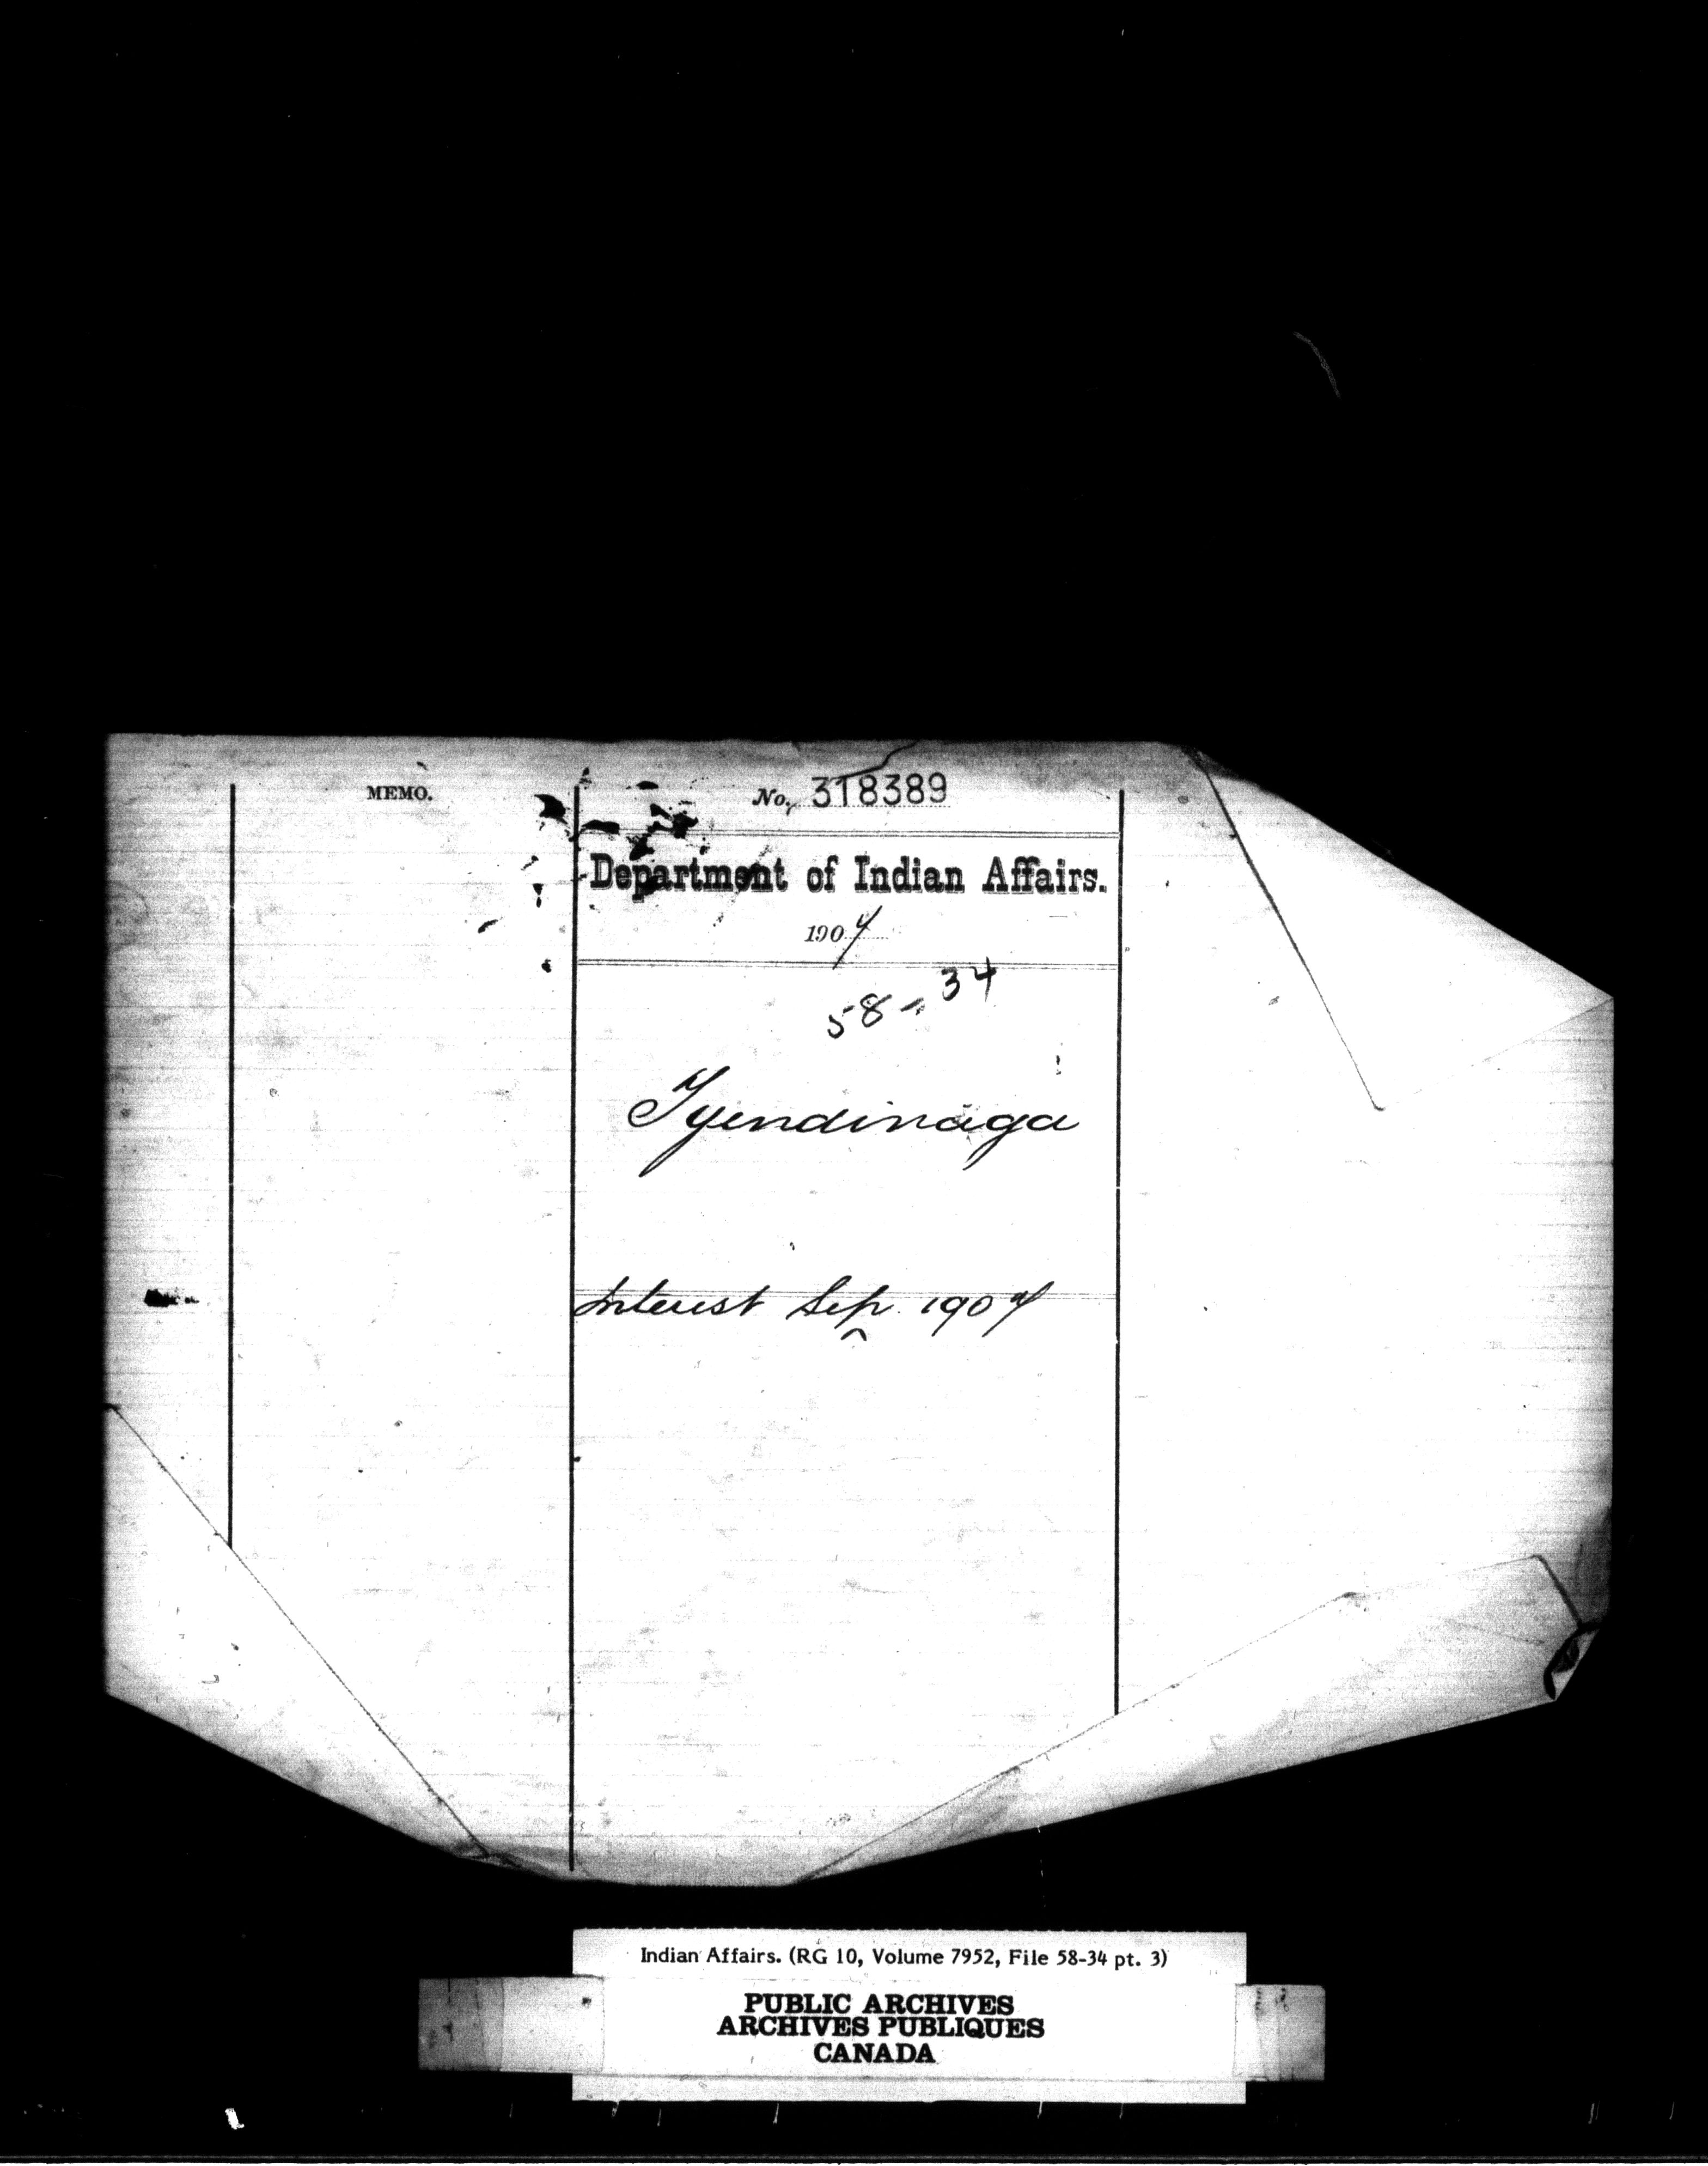 MEMO.
No. 318389
Department of Indian Affairs.
1907
58-34
Tyendinaga
Interest Sep. 1907
Indian Affairs. (RG 10, Volume 7952, File 58-34 pt. 3)
PUBLIC ARCHIVES
ARCHIVES PUBLIQUES
CANADA